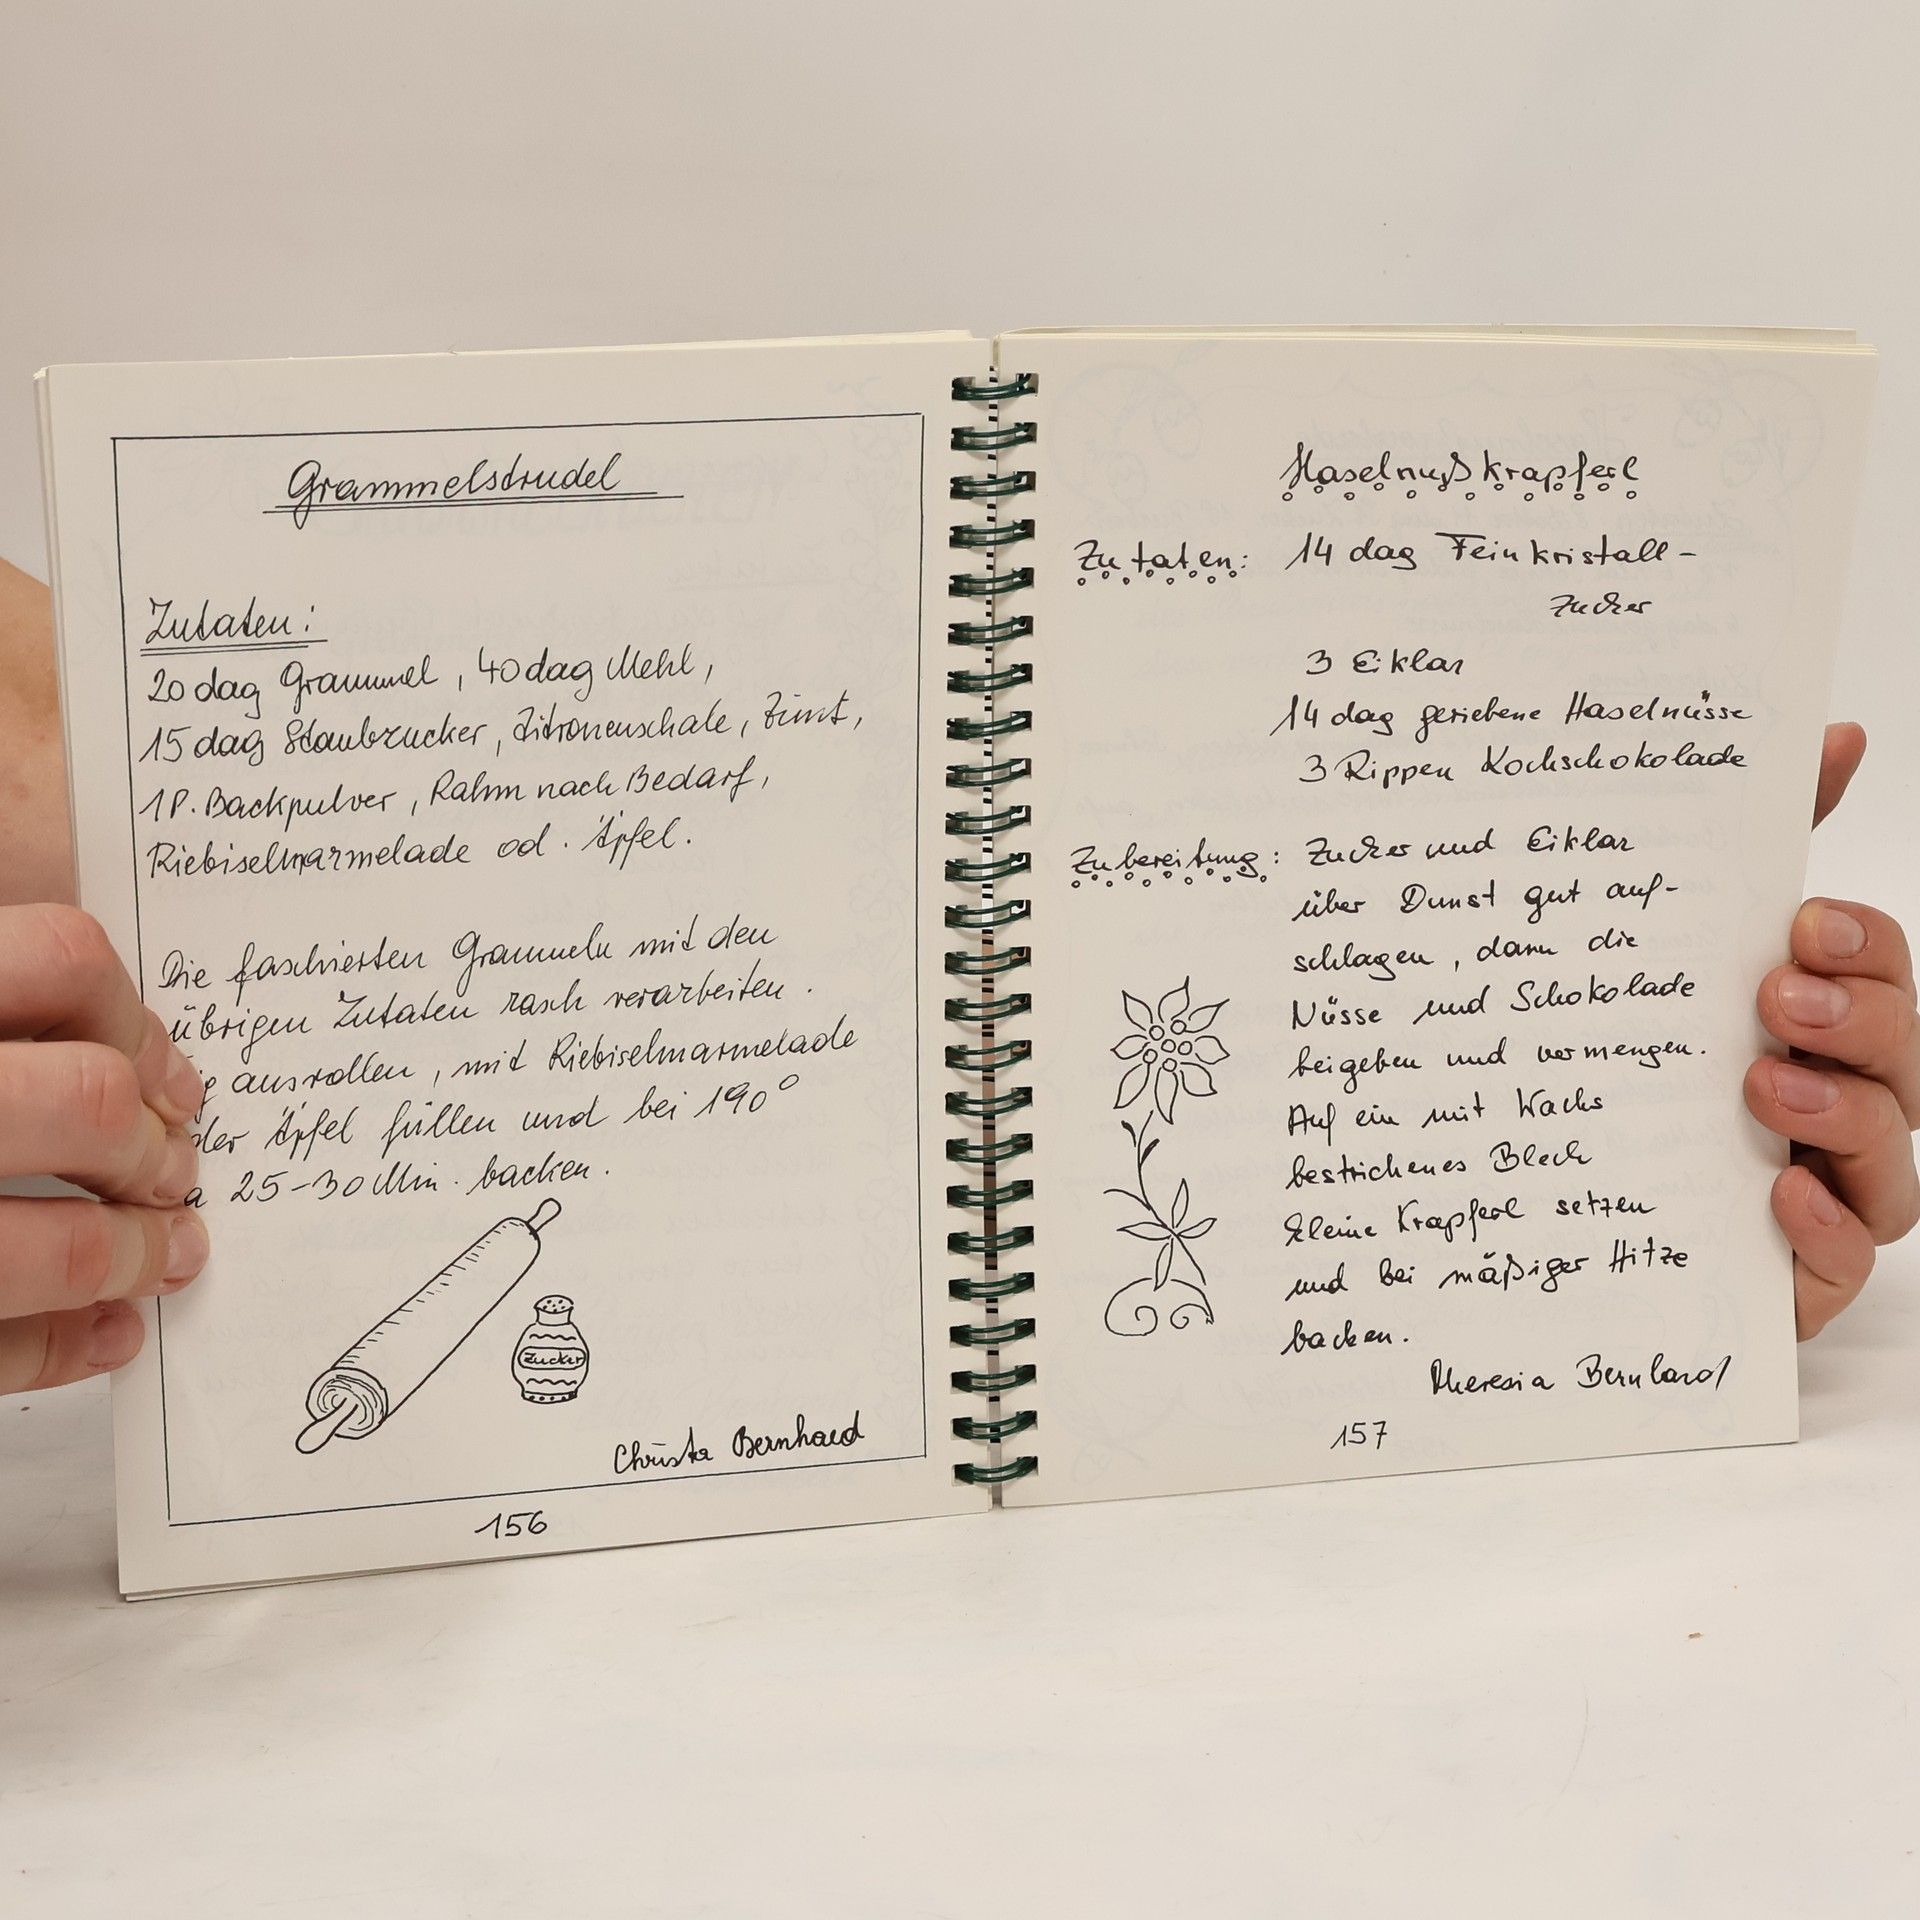 Grammelstrudel
Zutaten:
20 dag Grammel, 40 dag Mehl,
15 dag Staubzucker, Zitronenschale, Zimt,
1 P. Backpulver, Rahm nach Bedarf,
Riebiselmarmelade od. Äpfel.
Die faschierten Grammeln mit den
übrigen Zutaten rasch verarbeiten.
ausrollen, mit Riebiselmarmelade
der Äpfel füllen und bei 190°
a 25-30 Min. backen.
Zucker
Christa Bernhard
156
Haselnußkrapferl
Zutaten: 14 dag Feinkristall-
zucker
3 Eiklar
14 dag geriebene Haselnüsse
3 Rippen Kochschokolade
Zubereitung: Zucker und Eiklar
über Dunst gut auf-
schlagen, dann die
Nüsse und Schokolade
beigeben und vermengen.
Auf ein mit Wachs
bestrichenes Blech
kleine Krapferl setzen
und bei mäßiger Hitze
backen.
Theresia Bernhard
157